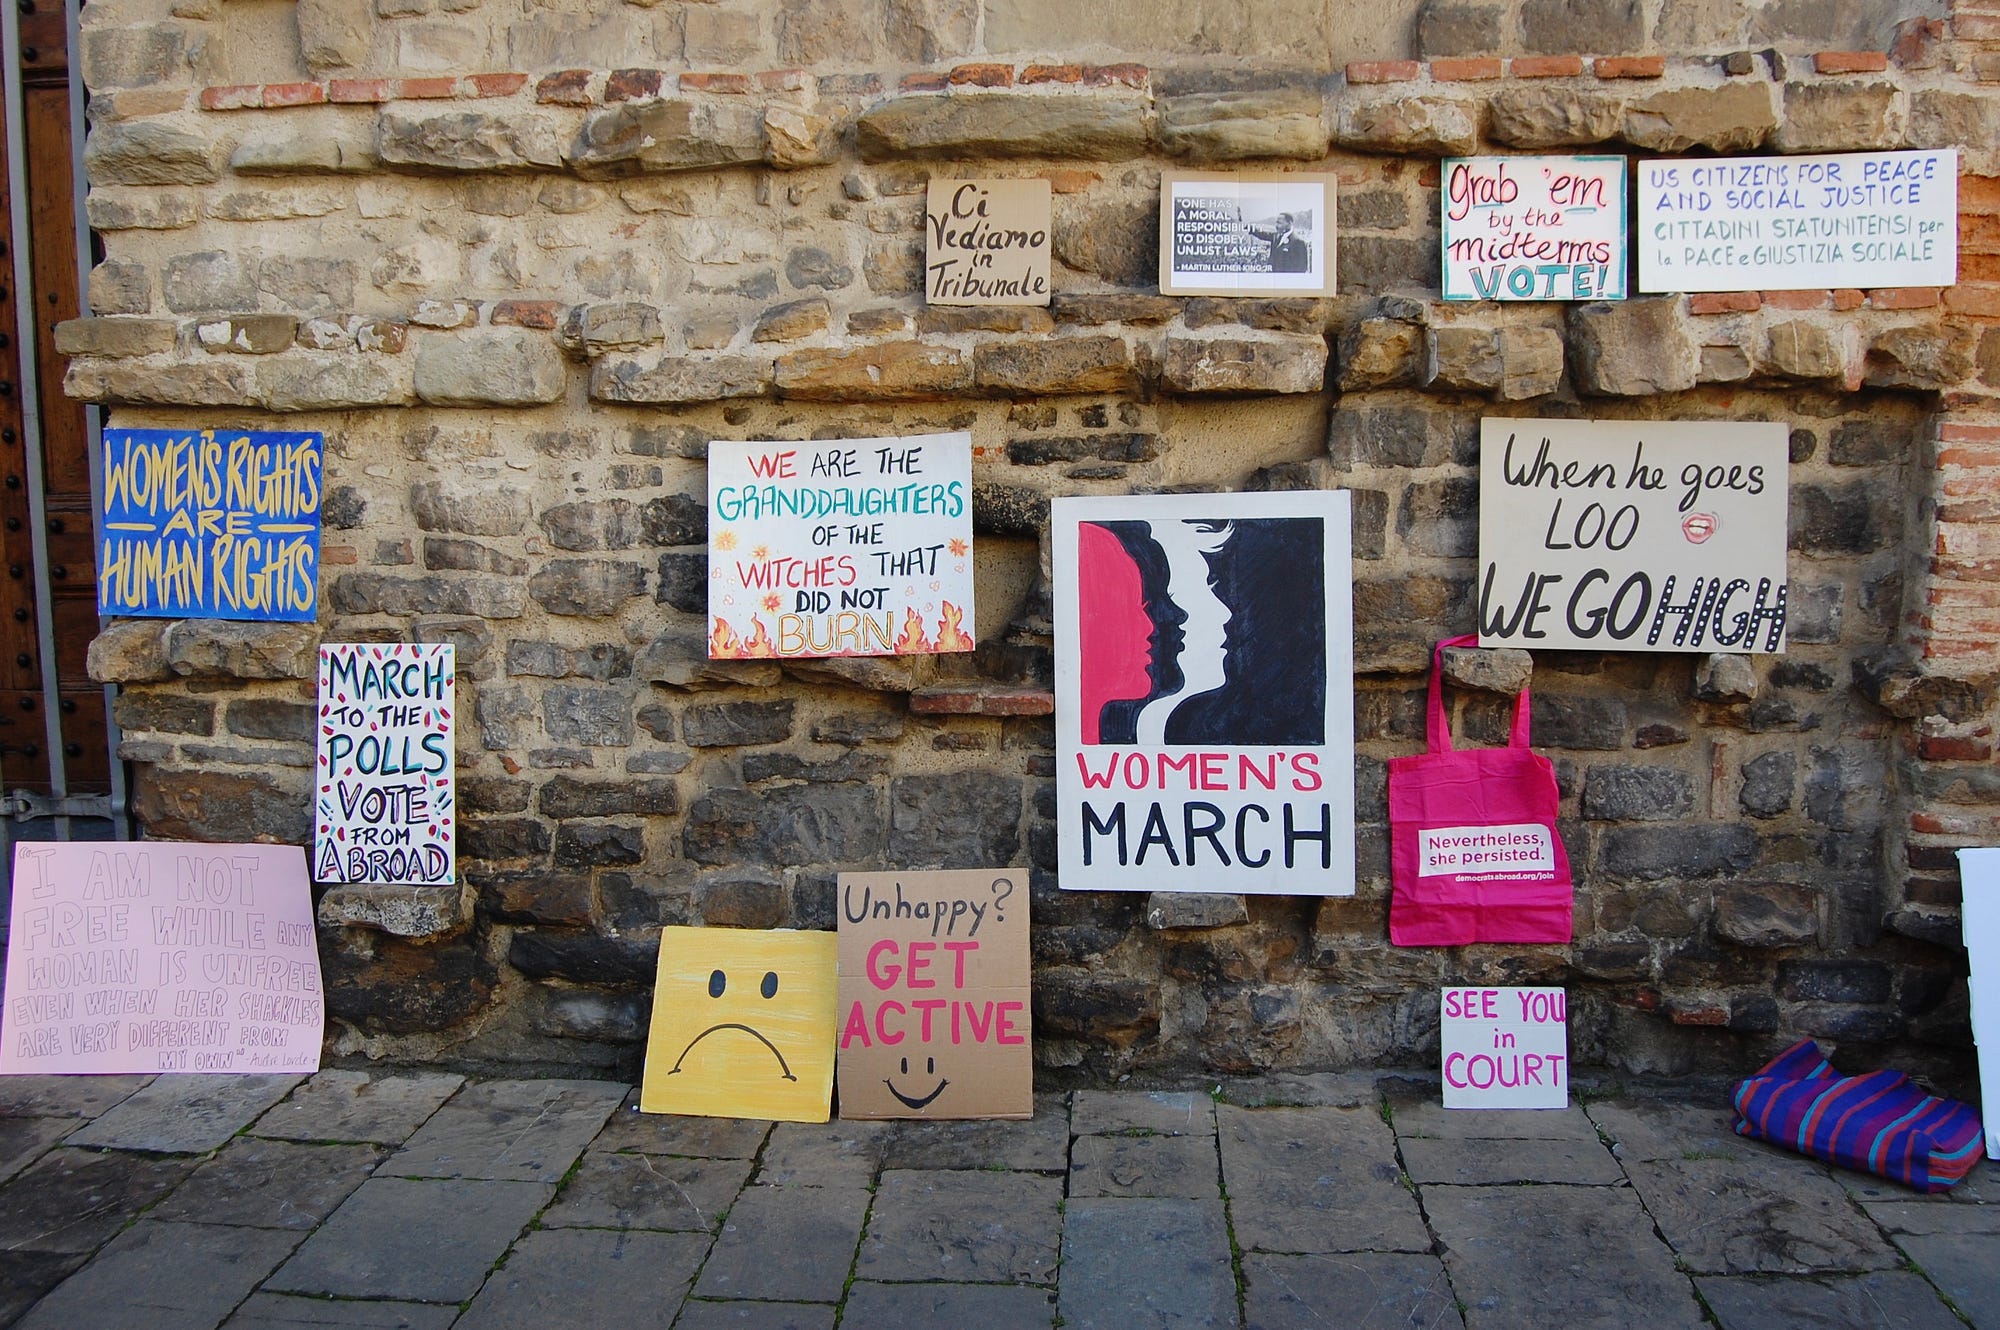 Ci
Vediamo
in
Tribunale
"ONE HAS
A MORAL
RESPONSIBILITY
TO DISOBEY
UNJUST LAWS"
- MARTIN LUTHER KING JR
Grab 'em
by the
midterms
VOTE!
US CITIZENS FOR PEACE
AND SOCIAL JUSTICE
CITTADINI STATUNITENSI per
la PACE e GIUSTIZIA SOCIALE
WOMEN'S RIGHTS
ARE
HUMAN RIGHTS
WE ARE THE
GRANDDAUGHTERS
OF THE
WITCHES THAT
DID NOT
BURN
WOMEN'S
MARCH
When he goes
LOO
WE GO HIGH
MARCH
TO THE
POLLS
VOTE
FROM
ABROAD
Nevertheless,
she persisted.
democratsabroad.org/join
"I AM NOT
FREE WHILE ANY
WOMAN IS UNFREE,
EVEN WHEN HER SHACKLES
ARE VERY DIFFERENT FROM
MY OWN" -Audre Lorde
Unhappy?
GET
ACTIVE
SEE YOU
in
COURT